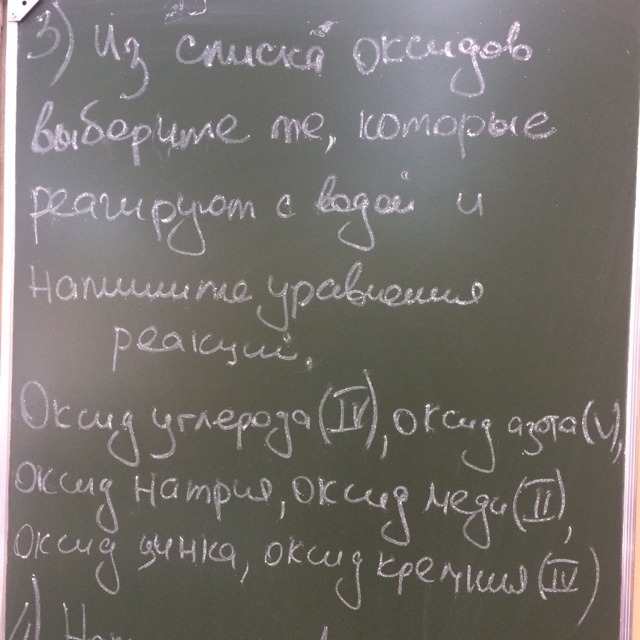 3) Из списка оксидов
выберите те, которые
реагируют с водой и
напишите уравнения
реакций.
Оксид углерода (IV), оксид азота (V),
оксид натрия, оксид меди (II),
оксид цинка, оксид кремния (IV)